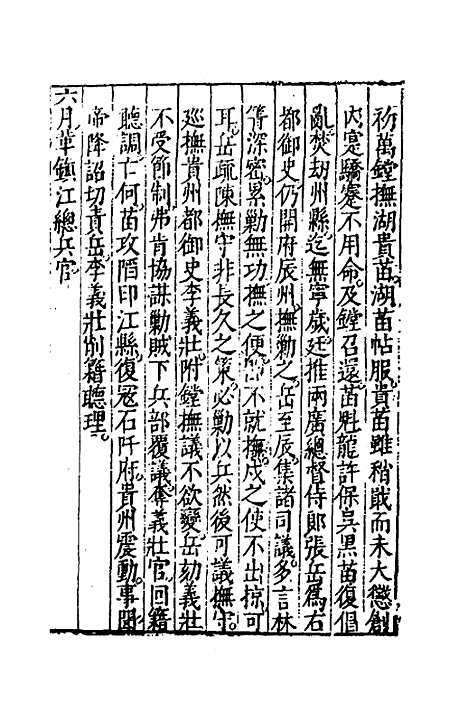 初萬鏜撫湖貴苗湖苗帖服貴苗雖稍戢而未大懲創
内寔驕蹇不用命及鏜召還苗魁龍許保吳黑苗復倡
亂焚劫州縣迄無寧歲廷推兩廣總督侍郎張岳爲右
都御史仍開府辰州撫勦之岳至辰集諸司議多言林
箐深密累勦無功撫之便卽不就撫戍之使不出掠可
耳岳疏陳撫守非長久之策必勦以兵然後可議撫守
廵撫貴州都御史李義壯附鏜撫議不欲變岳劾義壯
不受節制弗肯協謀勦賊下兵部覆議奪義壯官回籍
聽調亡何苗攻陷印江縣復冦石阡府貴州震動事聞
帝降詔切責岳李義壯削籍聽理
六月革鎮江總兵官